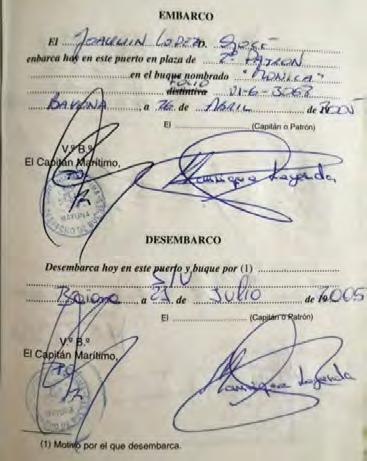 EMBARCO
El JOAQUIN LOPEZ D. JOSÉ
enbarca hoy en este puerto en plaza de 2º PATRON
en el buque nombrado "MONICA"
FOLIO
distintiva VI-6-3068
BAYONA, a 26 de ABRIL de 2005
El (Capitán o Patrón)
V.º B.º
El Capitán Marítimo,
Manrique Layenda
BAYONA
DESEMBARCO
Desembarca hoy en este puerto y buque por (1)
S/V
Baiona a 25 de JULIO de 2005
El (Capitán o Patrón)
V.º B.º
El Capitán Marítimo,
Manrique Layenda
(1) Motivo por el que desembarca.